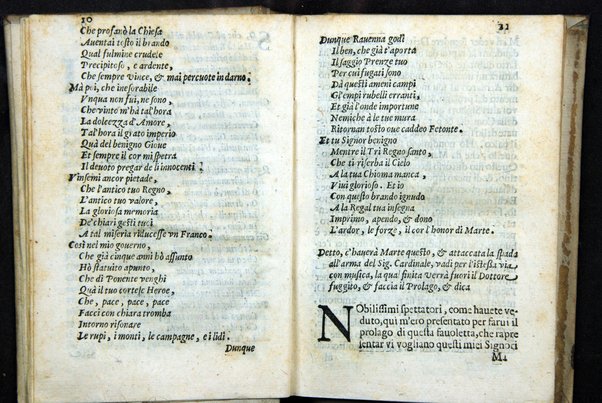 10
Che profanò la Chiesa
Auentai tosto il brando
Qual fulmine crudele
Precipitoso, e ardente,
Che sempre vince, & mai percuote indarno.
Mà poi, che inesorabile
Vnqua non fui, ne sono,
Che vinto m'hà tal'hora
La dolcezza d'Amore,
Tal'hora il grato imperio
Quà del benigno Gioue
Et sempre il cor mi spetra
Il diuoto pregar de li innocenti;
Vinsemi ancor pietade,
Che l'antico tuo Regno,
L'antico tuo valore,
La gloriosa memoria
De'chiari gesti tuoi
A tal miseria riducesse vn Franco.
Così nel mio gouerno,
Che già cinque anni hò assunto
Hò statuito apunto,
Che di Ponente venghi
Quà il tuo cortese Heroe,
Che, pace, pace, pace
Facci con chiara tromba
Intorno risonare
Le rupi, i monti, le campagne, e i lidi.
Dunque
11
Dunque Rauenna godi
Il ben, che già t'aporta
Il saggio Prenze tuo
Per cui fugati sono
Dà questi ameni campi
Gl'empi rubelli erranti,
Et già l'onde importune
Nemiche à le tue mura
Ritornan tosto oue caddeo Fetonte.
Et tu Signor benigno
Mentre il Tri Regno santo,
Che ti riserba il Cielo
A la tua Chioma manca,
Viui glorioso. Et io
Con questo brando ignudo
A la Regal tua insegna
Imprimo, apendo, & dono
L'ardor, le forze, il cor l'honor di Marte.
Detto, c'hauerà Marte questo, & attaccata la spada
all'arma del Sig. Cardinale, vadi per l'istessa via
con musica, la qua' finita verrà fuori il Dottore
fuggito, & faccia il Prolago, & dica
NObilissimi spettatori, come hauete ve-
duto, qui m'ero presentato per farui il
prolago di questa fauoletta, che rapre
sentar vi vogliano questi miei Signori
Ma